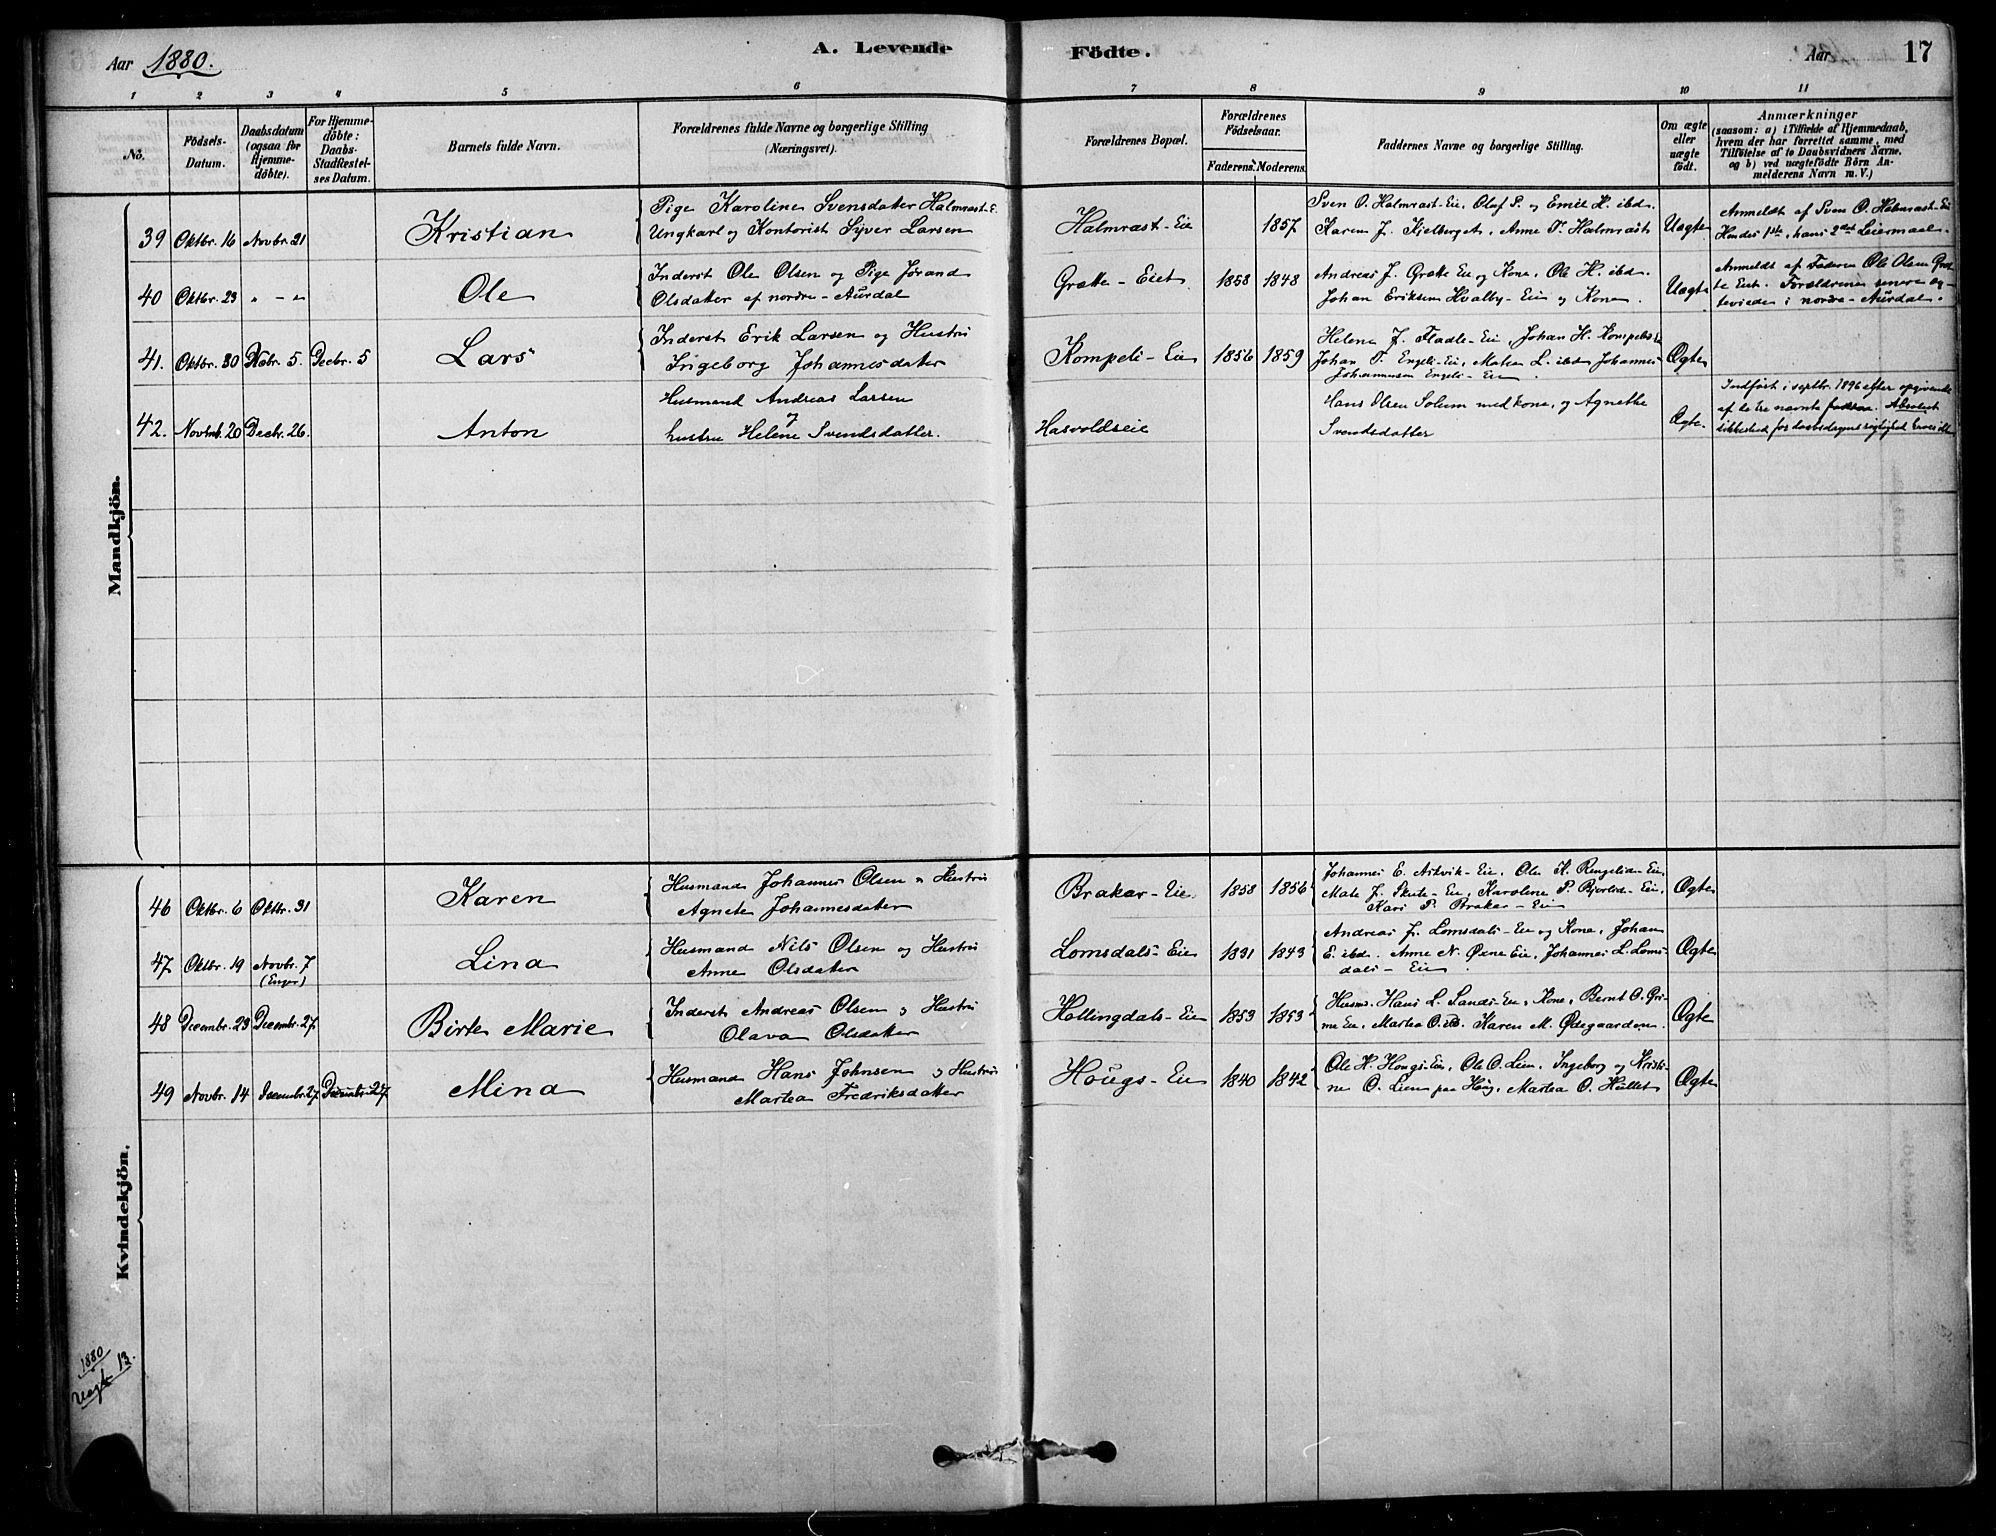 Aar 1880. A. Levende Födte. Aar 17
1 2 3 4 5 6 7 8 9 10 11
No. Födsels-Datum. Daabsdatum (ogsaa for Hjemme-döbte). For Hjemme-döbte: Daabs-Stadfæstel-ses Datum. Barnets fulde Navn. Forældrenes fulde Navne og borgerlige Stilling (Næringsvei). Forældrenes Bopæl. Forældrenes Födselsaar. Faderens. Moderens. Faddernes Navne og borgerlige Stilling. Om ægte eller uægte födt. Anmærkninger (saasom: a) i Tilfælde af Hjemmedaab, hvem der har forrettet samme, med Tilföielse af to Daabsvidners Navne, og b) ved uægtefödte Börn An-melderens Navn m. V.)
Mandkjön.
Pige Karoline Svensdatter Halmrast-E. Sven O. Halmrast-Eie, Olaf S. og Emil H. ibd. Anmeldt af Sven O. Halmrast-Eie
39 Oktbr. 16 Novbr. 21 Kristian Ungkarl og Kontorist Syver Larsen Halmrast-Eie 1857 Karen J. Kjelberget, Anne T. Halmrast Uægte Hendes 1ste, hans 2det Leiermaal.
Inderst Ole Olsen og Pige Jørand Andreas J. Grætte Eie og Kone, Ole H. ibd. Anmeldt af Faderen Ole Olsen Græt-
40 Oktbr. 23 " - " Ole Olsdatter af nordre-Aurdal Grætte-Eiet 1858 1848 Johan Eriksen Hvalby-Eie og Kone. Uægte te Eiet. Forældrene senere æg-
teviede i nordre-Aurdal.
Inderst Erik Larsen og Hustru Helene J. Fladle-Eie, Johan H. Kompeli-E
41. Oktbr. 30 Decbr. 5. Decbr. 5 Lars Ingeborg Johannesdatter Kompeli-Eie 1856 1859 Johan T. Engeli-Eie, Mathea L. ibd. Johannes Ægte
Johannesen Engeli-Eie
Husmand Andreas Larsen Hans Olsen Solum med kone, og Agnethe Indført i septbr. 1896 efter opgivende
42. Novbr. 20 Decbr. 26. Anton og hustru Helene Svendsdatter. Hasvoldseie Svendsdatter Ægte. af de her navnte faddere. Absolut
sikkerhed for daabsdagens rigtighed haves ikke
Kvindekjön.
Husmand Johannes Olsen og Hustru Johannes E. Askvik-Eie, Ole K. Rengelid-Eie,
46 Oktbr. 6 Oktbr. 31 Karen Agnete Johannesdatter Brakar-Eie 1858 1856 Mate J. Skute-Eie, Karoline P. Bjorlid-Eie, Ægte
Kari P. Brakar-Eie
Husmand Nils Olsen og Hustru Andreas J. Lomsdals-Eie og Kone, Johan
47 Oktbr. 19 Novbr. 7 Lina Anne Olsdatter Lomsdals-Eie 1831 1843 E. ibd. Anne N. Øxne Eie, Johannes L. Loms- Ægte
(Enger) dals-Eie
Inderst Andreas Olsen og Hustru Husm. Hans L. Sands-Eie, Kone, Bernt O. Gri-
48 Decembr. 23 Decembr. 27 Birte Marie Olava Olsdatter Hollingdals-Eie 1853 1853 me Eie, Martea O. ibd. Karen M. Ødegaarden. Ægte
Husmand Hans Johnsen og Hustru Ole H. Hougs-Eie, Ole O. Lien, Ingeborg og Kristi-
49 Novbr. 14 Decembr. 27 Decembr. 27 Mina Martea Fredriksdatter Hougs-Eie 1840 1842 ne O. Lien paa Houg, Martea O. Hullet Ægte
1880
Uægt 13.